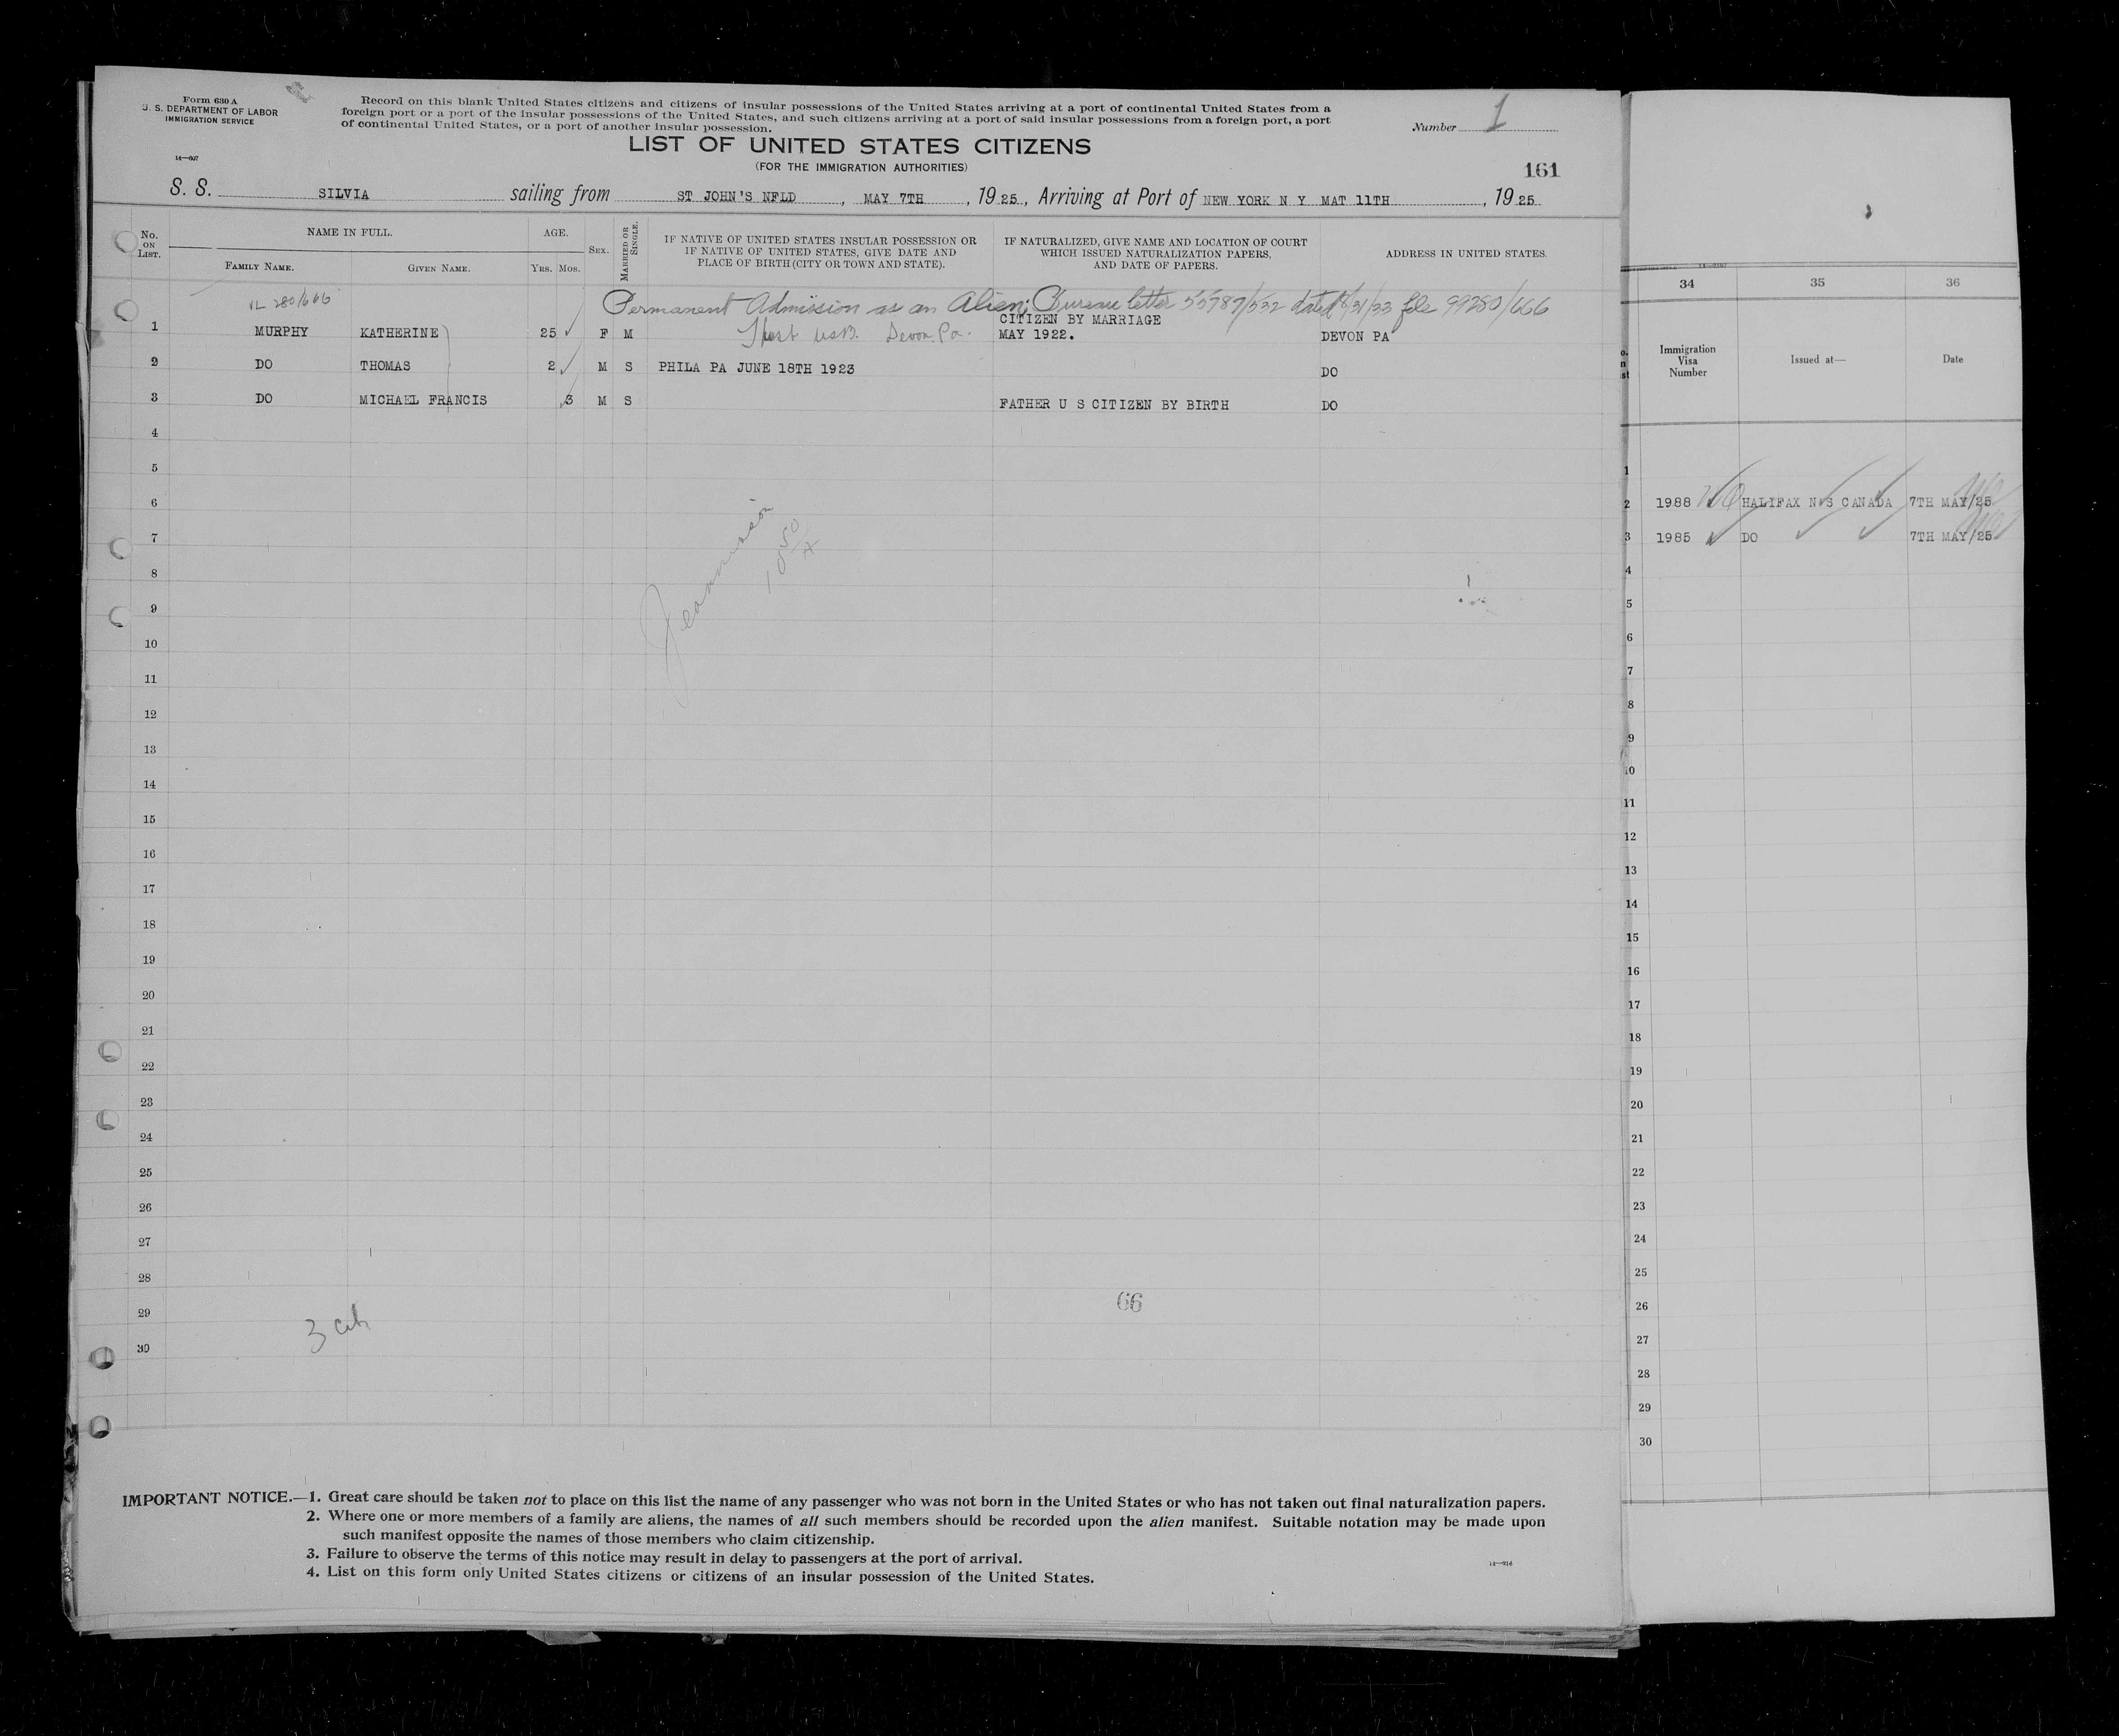 Form 630 A
U. S. DEPARTMENT OF LABOR
IMMIGRATION SERVICE
14—607
Record on this blank United States citizens and citizens of insular possessions of the United States arriving at a port of continental United States from a
foreign port or a port of the insular possessions of the United States, and such citizens arriving at a port of said insular possessions from a foreign port, a port
of continental United States, or a port of another insular possession.
Number 1
LIST OF UNITED STATES CITIZENS
(FOR THE IMMIGRATION AUTHORITIES)
161
S. S. SILVIA sailing from ST JOHN'S NFLD, MAY 7TH, 1925, Arriving at Port of NEW YORK N Y MAT 11TH, 1925
No. ON LIST. NAME IN FULL. FAMILY NAME. GIVEN NAME. AGE. YRS. MOS. SEX. MARRIED OR SINGLE.
IF NATIVE OF UNITED STATES INSULAR POSSESSION OR
IF NATIVE OF UNITED STATES, GIVE DATE AND
PLACE OF BIRTH (CITY OR TOWN AND STATE).
IF NATURALIZED, GIVE NAME AND LOCATION OF COURT
WHICH ISSUED NATURALIZATION PAPERS,
AND DATE OF PAPERS.
ADDRESS IN UNITED STATES.
VL 280/666
Permanent Admission as an Alien; Bureau letter 55787/532 dated 8/31/33 file 99280/666
1 MURPHY KATHERINE 25 F M Devon, Pa. CITIZEN BY MARRIAGE
MAY 1922. DEVON PA
2 DO THOMAS 2 M S PHILA PA JUNE 18TH 1923 DO
3 DO MICHAEL FRANCIS 3 M S FATHER U S CITIZEN BY BIRTH DO
4
5
6
7
8
9
10
11
12
13
14
15
16
17
18
19
20
21
22
23
24
25
26
27
28
29
30
3
66
IMPORTANT NOTICE.—1. Great care should be taken not to place on this list the name of any passenger who was not born in the United States or who has not taken out final naturalization papers.
2. Where one or more members of a family are aliens, the names of all such members should be recorded upon the alien manifest. Suitable notation may be made upon
such manifest opposite the names of those members who claim citizenship.
3. Failure to observe the terms of this notice may result in delay to passengers at the port of arrival.
4. List on this form only United States citizens or citizens of an insular possession of the United States.
34 35 36
Immigration
Visa
Number
Issued at—
Date
1
2 1988 HALIFAX N S CANADA 7TH MAY/25
3 1985 DO 7TH MAY/25
4
5
6
7
8
9
10
11
12
13
14
15
16
17
18
19
20
21
22
23
24
25
26
27
28
29
30